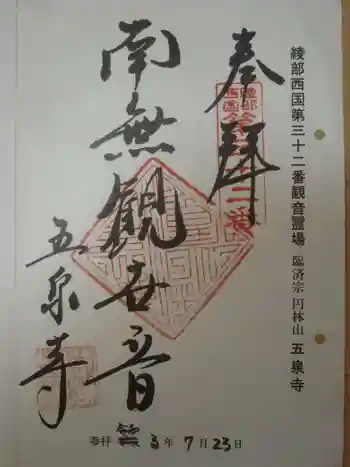 綾部西国第三十二番観音霊場 臨済宗円林山 五泉寺
奉拝
綾部西国第三十二番
南無観世音
五泉寺
参拝 3年7月23日